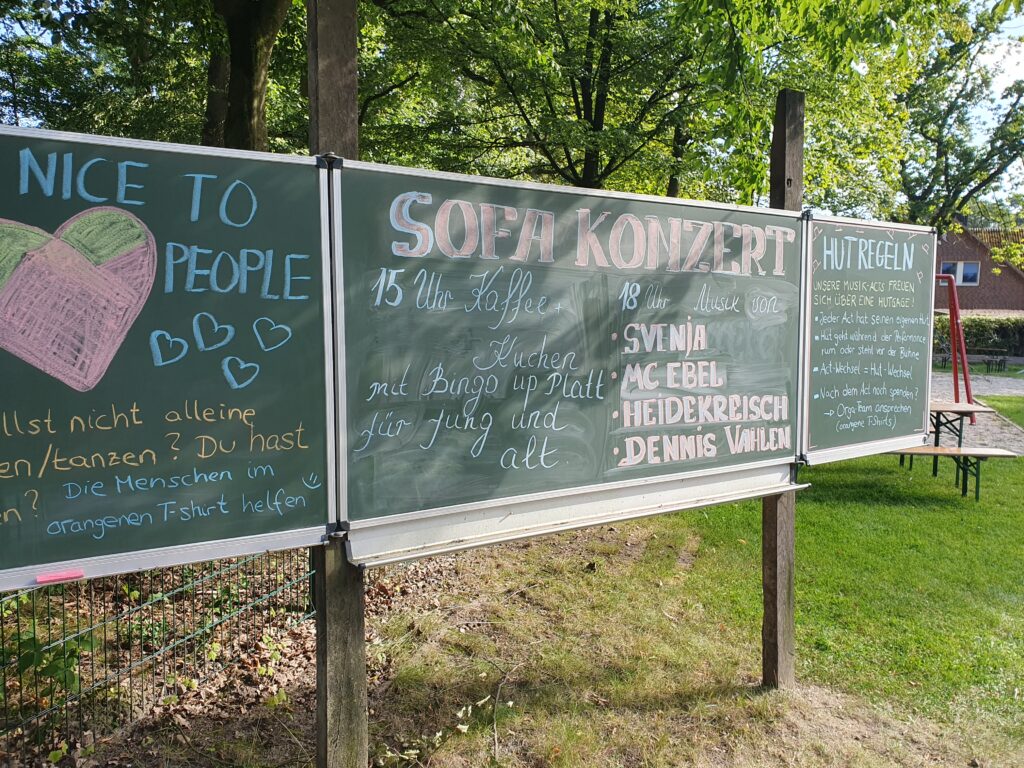 NICE TO
PEOPLE
llst nicht alleine
en/tanzen? Du hast
n? Die Menschen im
orangenen T-shirt helfen
SOFA KONZERT
15 Uhr Kaffee +
Kuchen
mit Bingo up Platt
für Jung und
alt.
18 Uhr Musik von
• SVENJA
• MC EBEL
• HEIDEKREISCH
• DENNIS VAHLEN
HUTREGELN
UNSERE MUSIK-ACTS FREUEN
SICH ÜBER EINE HUTGAGE!
• Jeder Act hat seinen eigenen Hut
• Hut geht während der Performance
rum oder steht vor der Bühne
• Act-Wechsel = Hut-Wechsel
• Nach dem Act noch spenden?
→ Orga-Team ansprechen
(orangene T-Shirts)